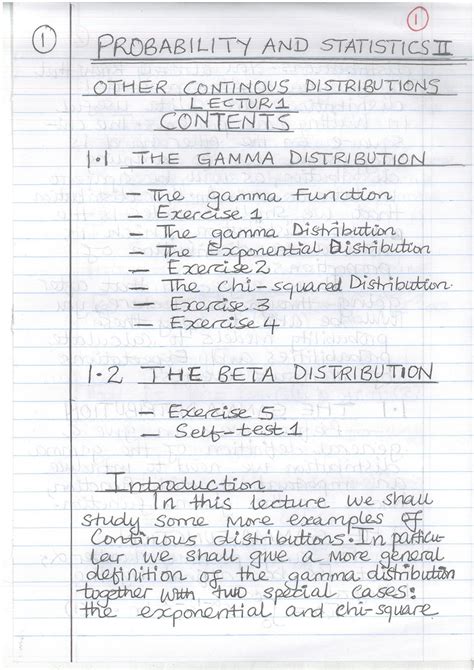 1
1
PROBABILITY AND STATISTICS II
OTHER CONTINOUS DISTRIBUTIONS
LECTUR 1
CONTENTS
1.1 THE GAMMA DISTRIBUTION
– The gamma Function
– Exercise 1
– The gamma Distribution
– The Exponential Distribution
– Exercise 2
– The chi-squared Distribution.
– Exercise 3
– Exercise 4
1.2 THE BETA DISTRIBUTION
– Exercise 5
– Self-test 1
Introduction
In this lecture we shall
study some more examples of
Continous distributions. In particu-
lar we shall give a more general
definition of the gamma distribution
together with two special cases:
the exponential and chi-square